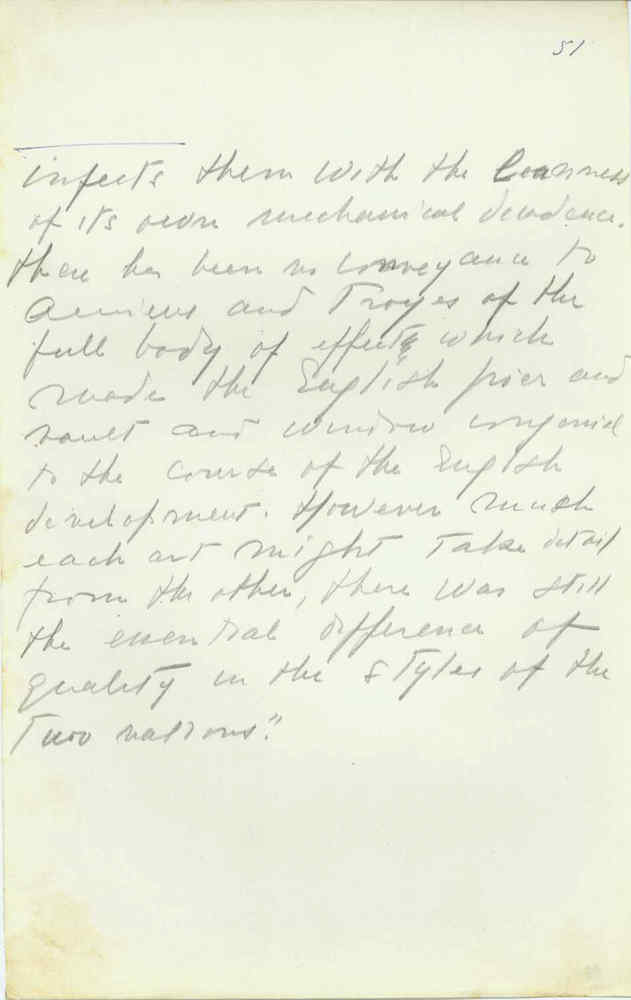 51
infects them with the leanness
of its own mechanical decadence.
there has been no conveyance to
Amiens and Troyes of the
full body of effects which
made the English pier and
vault and window congenial
to the course of the English
development. However much
each art might take detail
from the other, there was still
the essential difference of
quality in the styles of the
two nations".